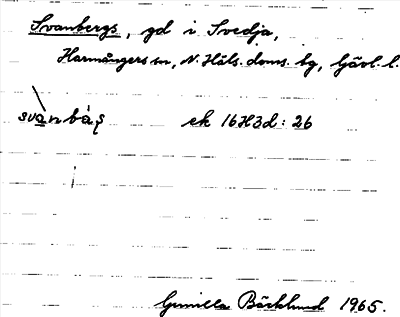 Svanbergs, gd i Svedja,
Harmångers sn, N. Häls. doms. bg, Gävl. l.
svànbàş ek 16H3d: 26
Gunilla Bäcklund 1965.